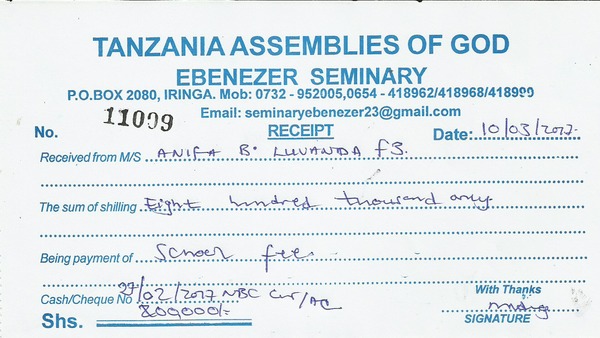 TANZANIA ASSEMBLIES OF GOD
EBENEZER SEMINARY
P.O.BOX 2080, IRINGA. Mob: 0732 - 952005,0654 - 418962/418968/418999
Email: seminaryebenezer23@gmail.com
No. 11009 RECEIPT Date: 10/03/2017
Received from M/S ANIFA B. LUVANDA F3.
The sum of shilling Eight hundred thousand only
Being payment of School fees
Cash/Cheque No 27/02/2017 NBC Cur/AC
With Thanks
Shs. 800,000/=
SIGNATURE